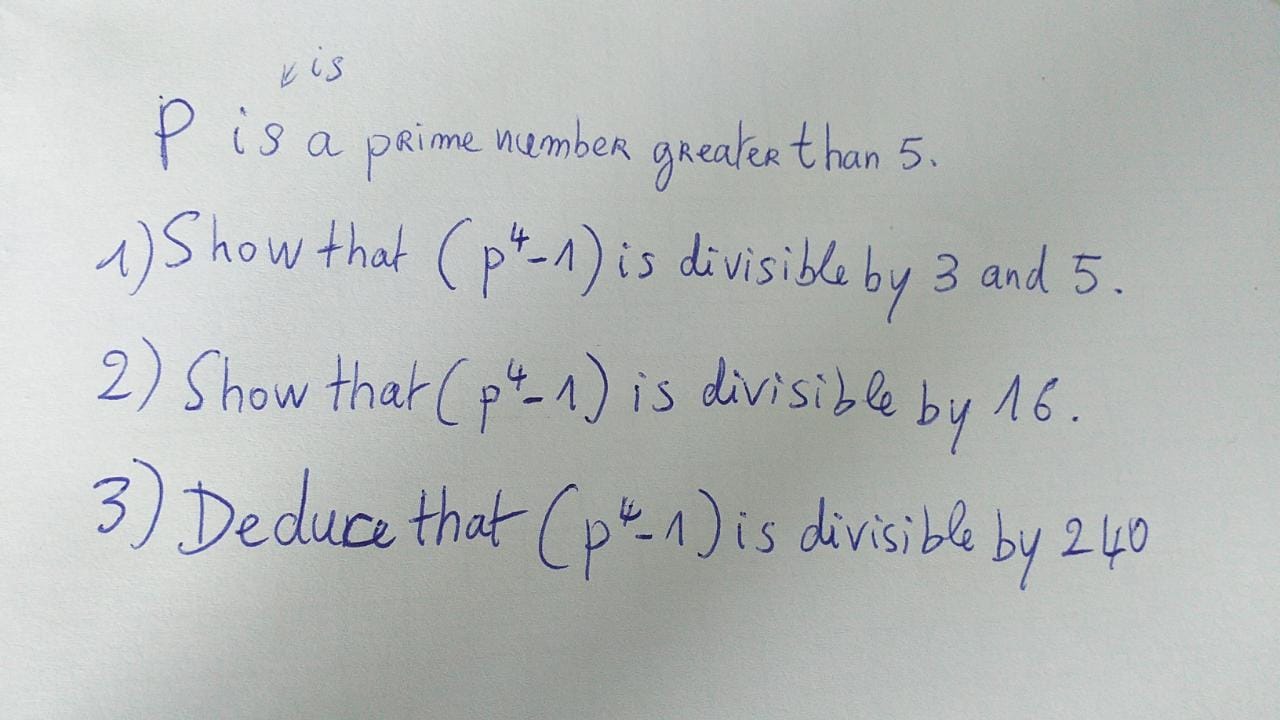 is
P is a prime number greater than 5.
1) Show that (p⁴-1) is divisible by 3 and 5.
2) Show that (p⁴-1) is divisible by 16.
3) Deduce that (p⁴-1) is divisible by 240